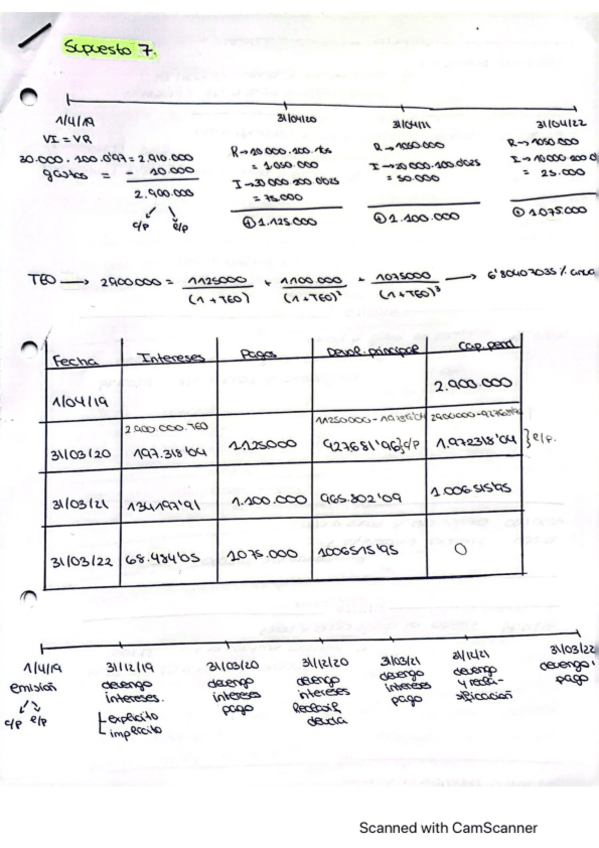 Supuesto 7.
1/4/19
31/04/20
31/04/11
31/04/22
VI = VR
30.000 . 100 . 0'97 = 2.910.000
gastos = - 10.000
2.900.000
c/p e/p
R → 10 000 . 100 .
= 1.050.000
I → 30 000 . 100 0'025
= 75.000
⊕ 1.125.000
R → 1050.000
I → 20 000 . 100 . 0'025
= 50.000
⊕ 1.100.000
R → 1050.000
I → 10000 . 100 0
= 25.000
⊕ 1075.000
TEO → 2900000 = 1125000 / (1 + TEO) + 1.100.000 / (1 + TEO)² + 1075000 / (1 + TEO)³ → 6'80407035 %
Fecha Intereses Pagos Devol. principal Cap. pend
1/04/19 2.900.000
2.900 000 . TEO
31/03/20 197.318'04 1.125000 927681'96 } c/p 1.972318'04 } e/p.
31/03/21 134197'91 1.100.000 965.802'09 1.006.515'95
31/03/22 68.484'05 1075.000 1006515'95 0
1/4/19
emisión
c/p e/p
31/12/19
devengo
intereses.
explícito
implícito
31/03/20
devengo
intereses
pago
31/12/20
devengo
intereses
Reclasif.
deuda
31/03/21
devengo
intereses
pago
31/12/21
devengo
y recla-
sificación
31/03/22
devengo,
pago
Scanned with CamScanner